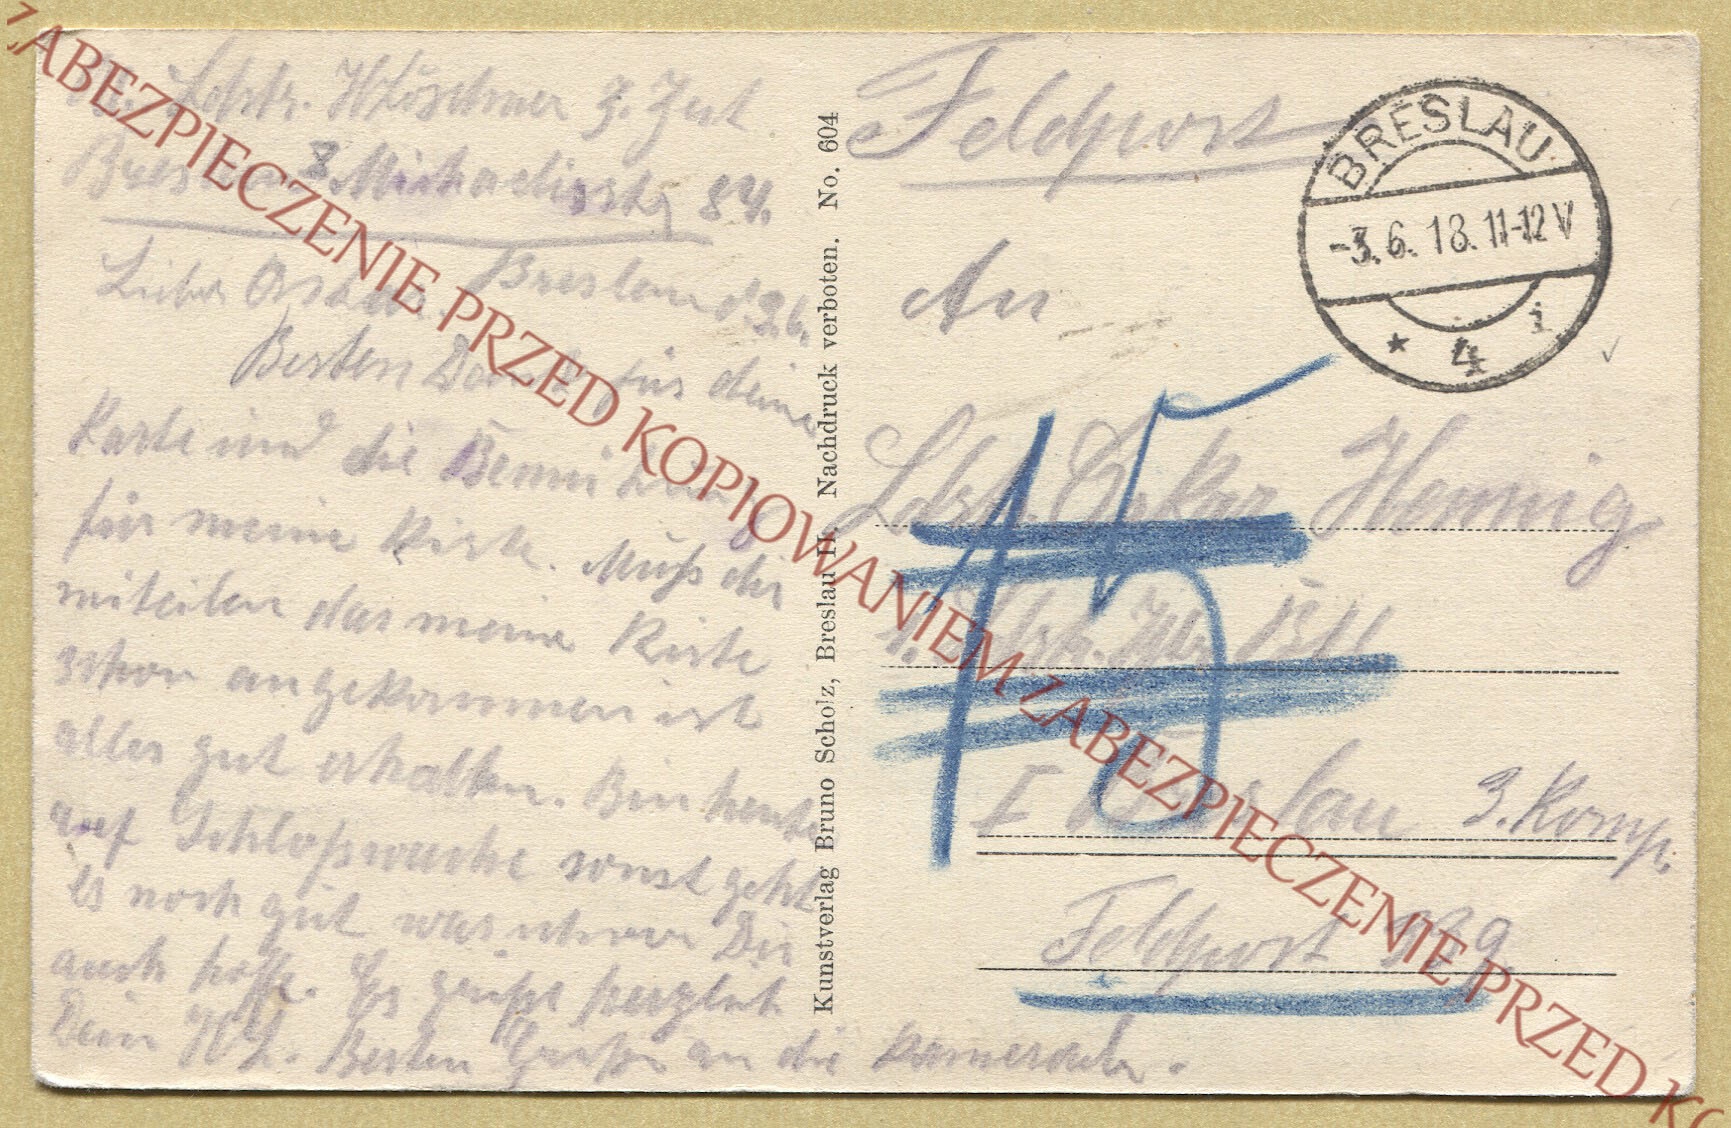 Ldstr. H. Löschner z. Zeit
Breslau 8 Michaelisstr 84.
Breslau d. 3.6.
Lieber Oskar.
Besten Dank für deine
Karte und die Bemühung
für meine Kiste. Muß dir
miteilen das meine Kiste
schon angekommen ist
alles gut erhalten. Bin heute
auf Schloßwache sonst geht
es noch gut was ich von Dir
auch hoffe. Es grüßt herzlich
Dein H. L. Besten Grüße an die Kameraden.
Kunstverlag Bruno Scholz, Breslau II. Nachdruck verboten. No. 604
Feldpost
BRESLAU
-3.6.18.11-12V
* 4 i
An
Ldstr. Oskar Hennig
15
I Breslau 3. Komp.
Feldpost
ZABEZPIECZENIE PRZED KOPIOWANIEM ZABEZPIECZENIE PRZED KO